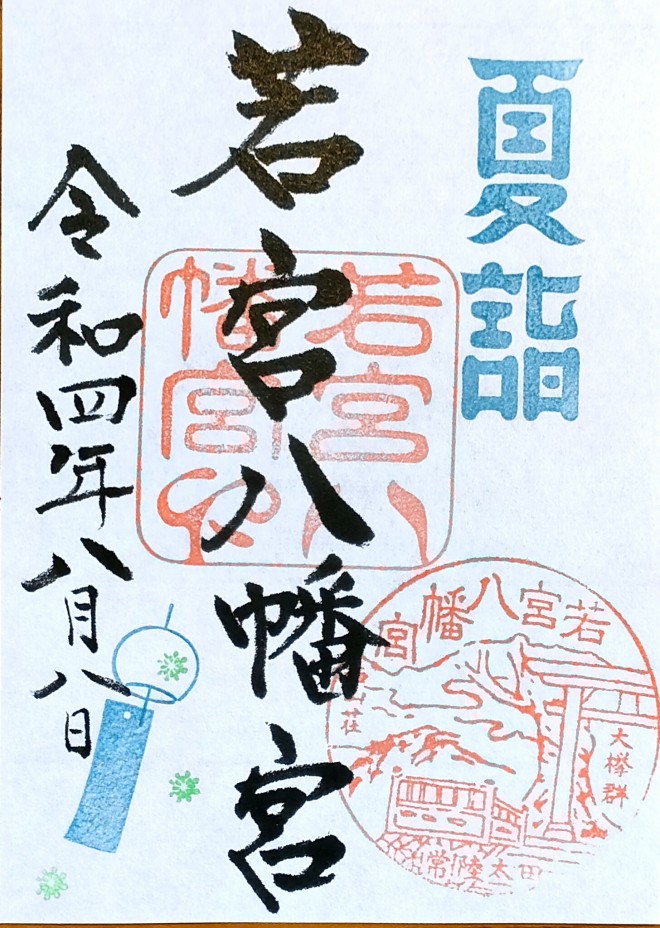 夏詣
若宮八幡宮
令和四年八月八日
若宮八
幡宮
若宮八幡宮
大欅群
山荘
常陸太田